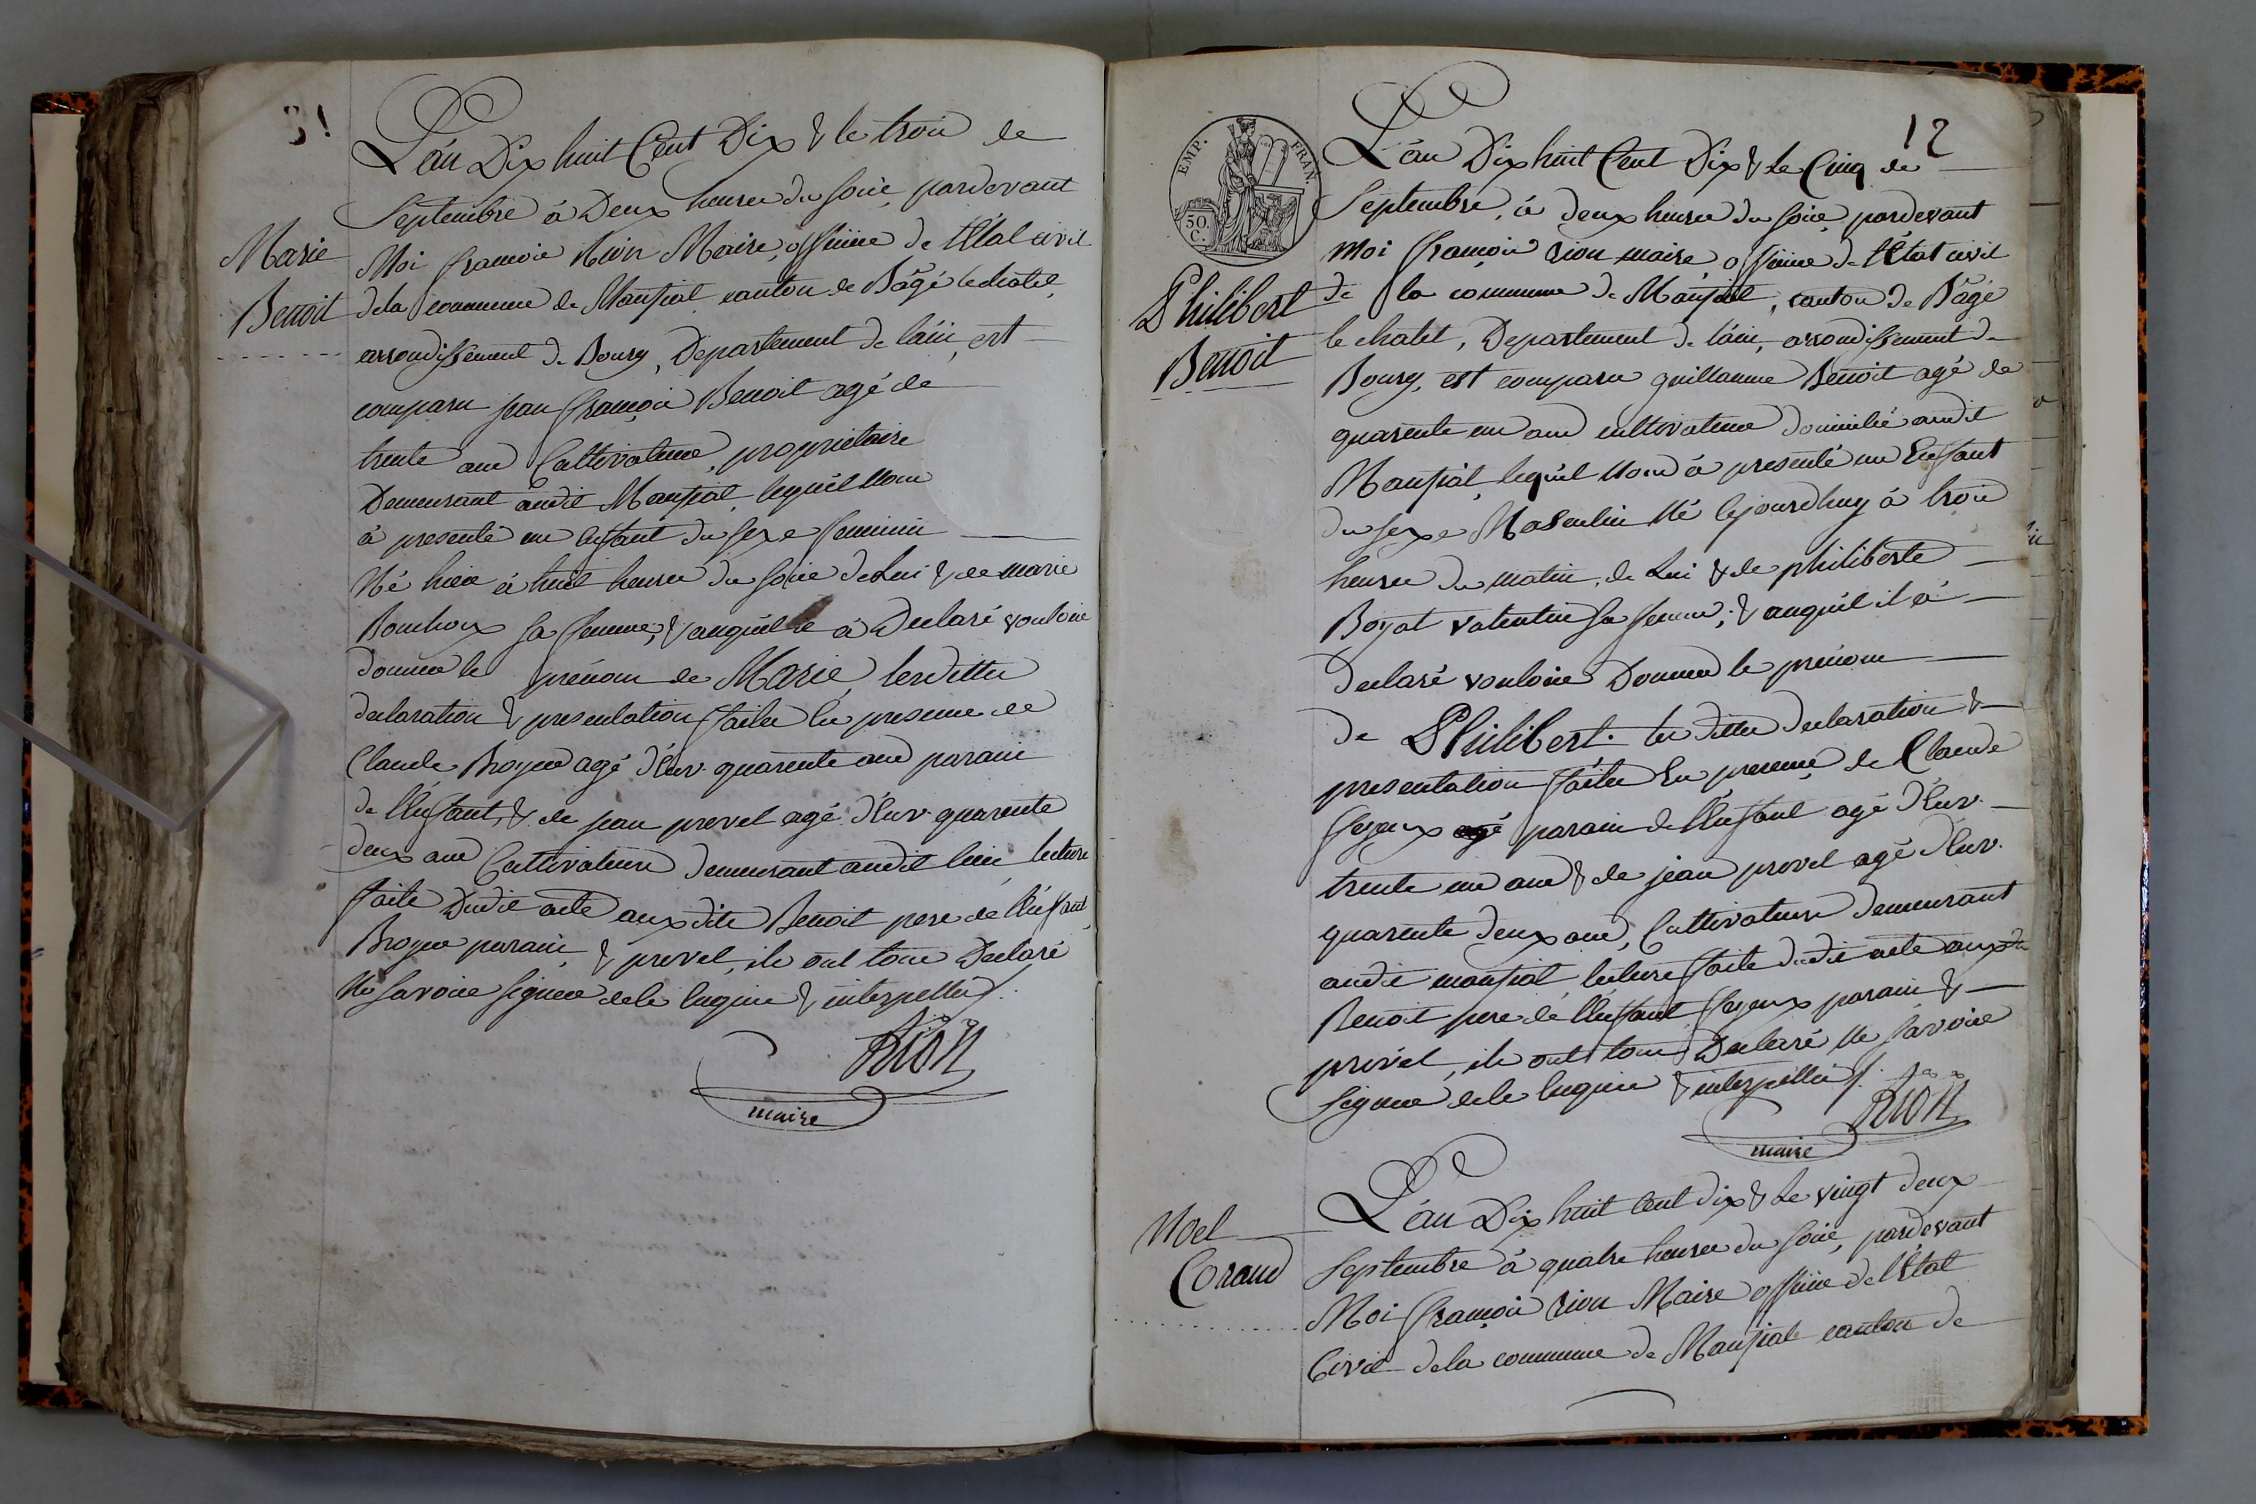 31
Marie
Benoit
L'an Dix huit Cent Dix & le trois de
Septembre à Deux heures du soir, pardevant
Moi françois Rion Maire, officier de l'Etat civil
dela commune de Mansiat canton de Bâgé lechatel,
arrondissement de Bourg, Departement de l'ain, est
comparu jean françois Benoit agé de
trente ans Cultivateur, proprietaire
Demeurant audit Mansiat, lequel nous
à presenté un Enfant du sexe feminin
Né hier à huit heures du soir de Lui & de marie
Bouchoux sa femme, & auquel à Declaré vouloir
donner le prénom de Marie, lesdittes
declaration & presentation faites En presence de
Claude Broyer agé d'Env. quarente ans parain
de l'Enfant, & de jean prevel agé d'Env. quarente
deux ans Cultivateurs demeurant audit lieu, lecture
faite Dudit acte auxdits Benoit pere de l'Enfant,
Broyer parain, & prevel, ils ont tous Declaré
Ne Savoir signer dece enquis & interpellés.
Rion
maire
12
EMP. FRAN.
50.
C.
Philibert
Benoit
L'an Dix huit Cent Dix & Le Cinq de
Septembre, à deux heures du soir, pardevant
Moi françois Rion maire officier de l'Etat civil
de la commune de Mansiat, canton de Bâgé
le chatel, Departement de l'ain, arrondissement de
Bourg, est comparu guillaume Benoit agé de
quarente un ans cultivateur domicilié audit
Mansiat, lequel nous à presenté un Enfant
du sexe Masculin Né cejourdhuy à trois
heures du matin, de Lui & de philiberte
Boyat valentin sa femme; & auquel il à
declaré vouloir Donner le prénom
de Philibert. les dittes declaration &
presentation faites En presence de Claude
feyeux parain de l'Enfant agé d'Env.
trente un ans & de jean prevel agé d'Env.
quarente deux ans, Cultivateurs demeurant
audit mansiat lecture faite dudit acte auxdits
Benoit pere de l'Enfant feyeux parain &
prevel, ils ont tous Declaré Ne Savoir
Signer dece enquis & interpellés.
Rion
maire
Noel
Corand
L'an Dix huit Cent dix & Le vingt deux
Septembre à quatre heures du soir, pardevant
Moi françois Rion Maire officier de l'Etat
Civil dela commune de Mansiat canton de